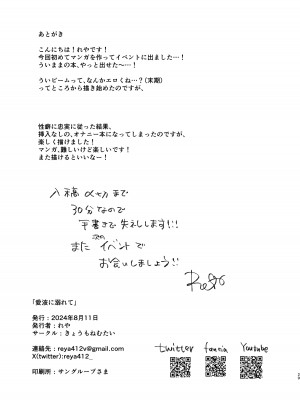 あとがき
こんにちは！れやです！
今回初めてマンガを作ってイベントに出ました…！
ういままの本、やっと出せた〜…！
ういビームって、なんかエロくね…？（末期）
ってところから描き始めたのですが、
性癖に忠実に従った結果、
挿入なしの、オナニー本になってしまったのですが、
楽しく描けました！
マンガ、難しいけど楽しいです！
また描けるといいなー！
入稿〆切まで
30分なので
手書きで失礼します!!
また次のイベントで
お会いしましょう!!
「愛液に溺れて」
発行：2024年8月11日
発行者：れや
サークル：きょうもねむたい
連絡先：reya412v@gmail.com
X(twitter):reya412_
印刷所：サングループさま
twitter
fanzia
Youtube